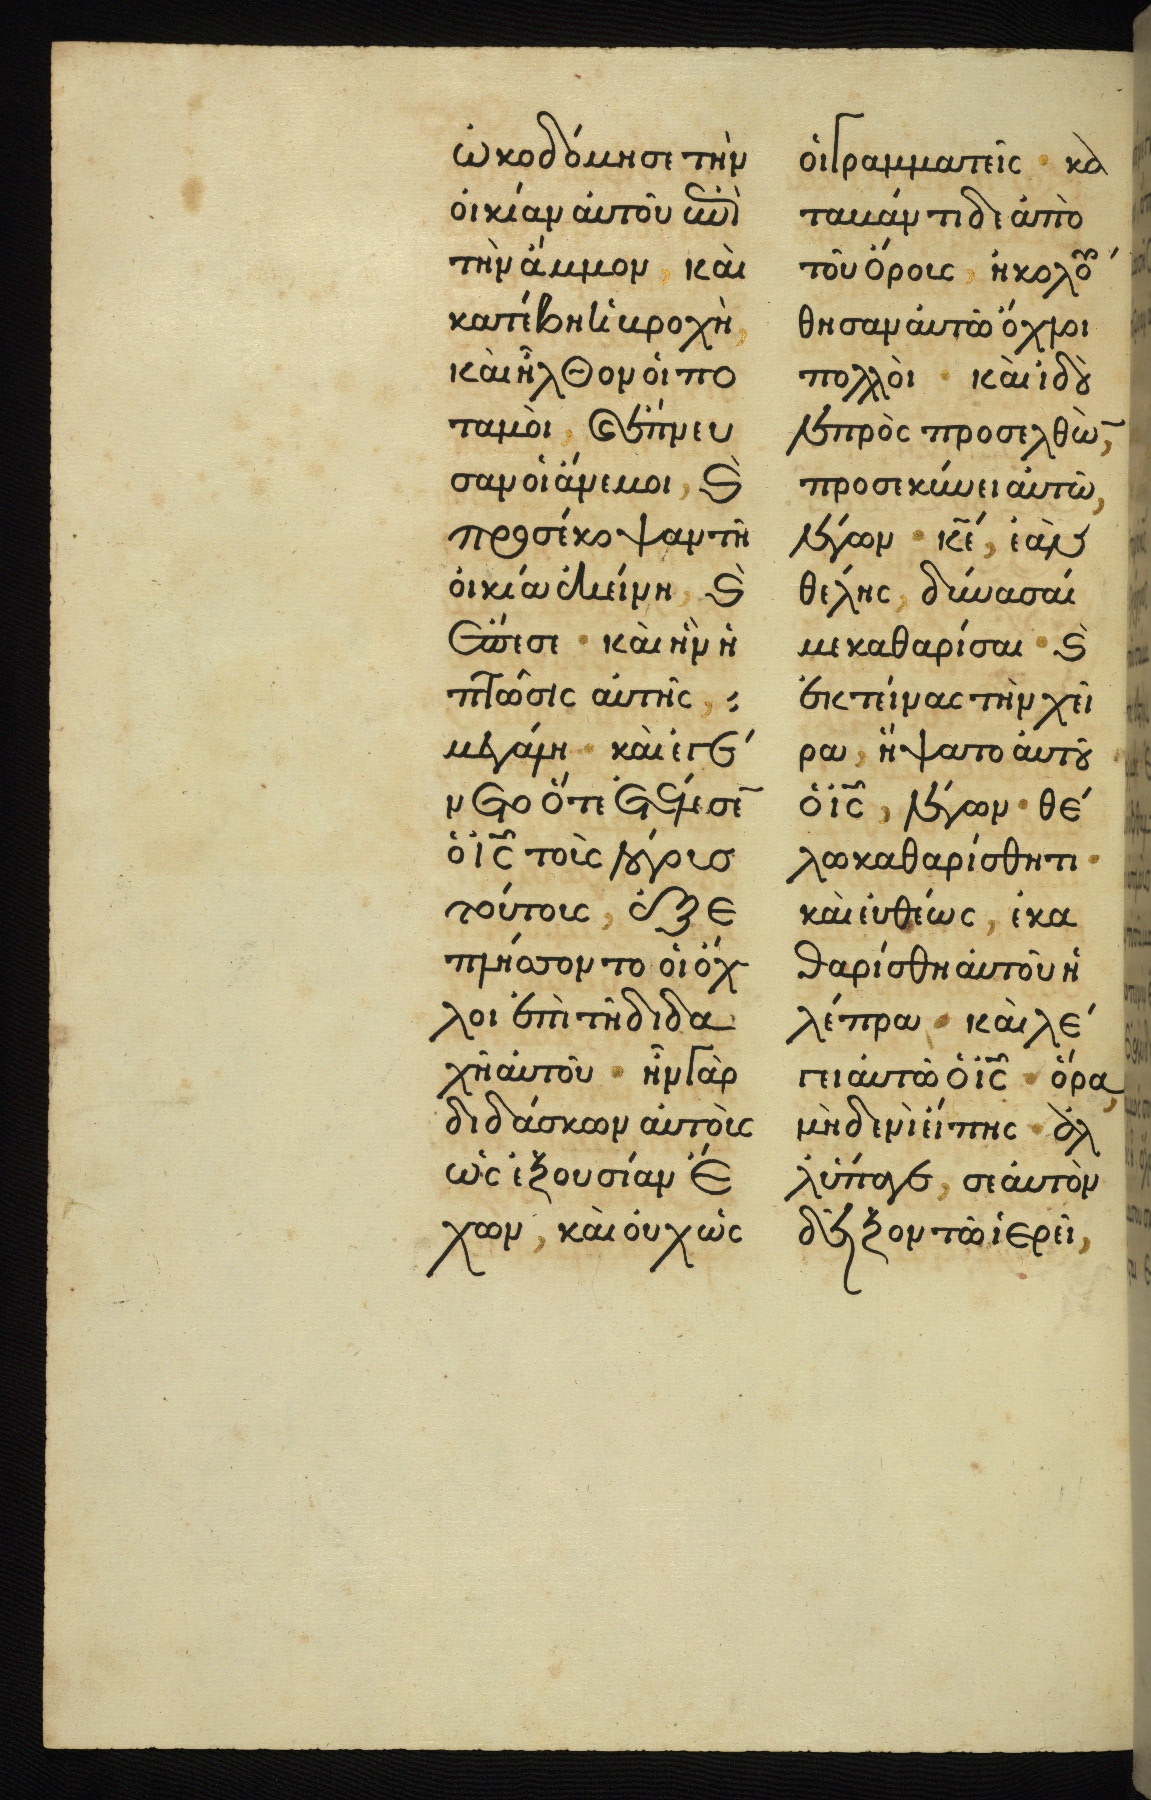 ὠκοδόμησε τὴν
οἰκίαν ἀυτοῦ ἐπὶ
τὴν ἄμμον, καὶ
κατέβη ἡ βροχὴ,
κὰι ἦλθον ὁι πο
ταμὸι, ϗ ἔπνευ
σαν ὁι ἄνεμοι, ϗ
προσέκοψαν τῆ
ὀικία ἐκείνη, ϗ
ἔπεσε · κὰι ἦν ἡ
πτῶσις ἀυτῆς,
μεγάλη · κὰι ἐγέ
νετο ὅτε ἐτέλεσε̄
ὁ ἰς̄ τοὺς λόγους
τούτους, ἐξε
πλήσσοντο ὁι ὄχ
λοι ἐπὶ τῆ διδα
χῆ ἀυτοῦ · ἦν γὰρ
διδάσκων ἀυτοὺς
ὡς ἐξουσίαν ἔ
χων, κὰι ὀυχ ὡς
ὁι γραμματεῖς · κα
ταβάντι δὲ ἀπὸ
τοῦ ὄρους, ἠκολού
θησαν ἀυτῶ ὄχλοι
πολλὸι · κὰι ἰδοὺ
λεπρὸς προσελθὼ̄,
προσεκύνει ἀυτῶ,
λέγων · κ̄ε, ἐὰν
θέλης, δύνασαί
με καθαρίσαι · ϗ
ἐκτείνας τὴν χεῖ
ρα, ἥψατο ἀυτοῦ
ὁ ἰς̄, λέγων · θέ
λω καθαρίσθητι ·
κὰι ἐυθέως, ἐκα
θαρίσθη ἀυτοῦ ἡ
λέπρα · κὰι λέ
γει ἀυτῶ ὁ ἰς̄ · ὅρα,
μὴδενὶ ἔιπης · ἀλ
λ' ὕπαγε, σεἀυτὸν
δεῖξον τῶ ἱερεῖ,